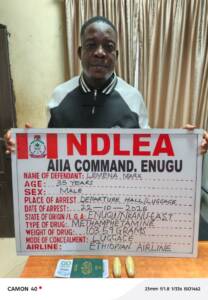 NDLEA
AIIA COMMAND. ENUGU
NAME OF DEFENDANT:
AGE: 35 YEARS
SEX: MALE
PLACE OF ARREST DEPARTURE HALL/LUGGAGE
DATE OF ARREST: 22-10-
STATE OF ORIGIN/L.G.A: ENUGU/NKANU EAST
TYPE OF DRUG: METHAMPHETAMINE
WEIGHT OF DRUG: GRAMS
MODE OF CONCEALMENT: LUGGAGE
AIRLINE: ETHIOPIAN AIRLINE
CAMON 40
23mm f/1.8 1/33s ISO1462